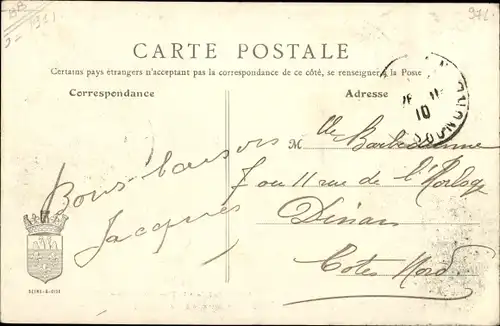 CARTE POSTALE
Certains pays étrangers n'acceptant pas la correspondance de ce côté, se renseigner à la Poste
Correspondance
Adresse
Bons baisers
Jacques
M lle Barbedienne
7 ou 11 rue de l'Horloge
Dinan
Côtes Nord
10